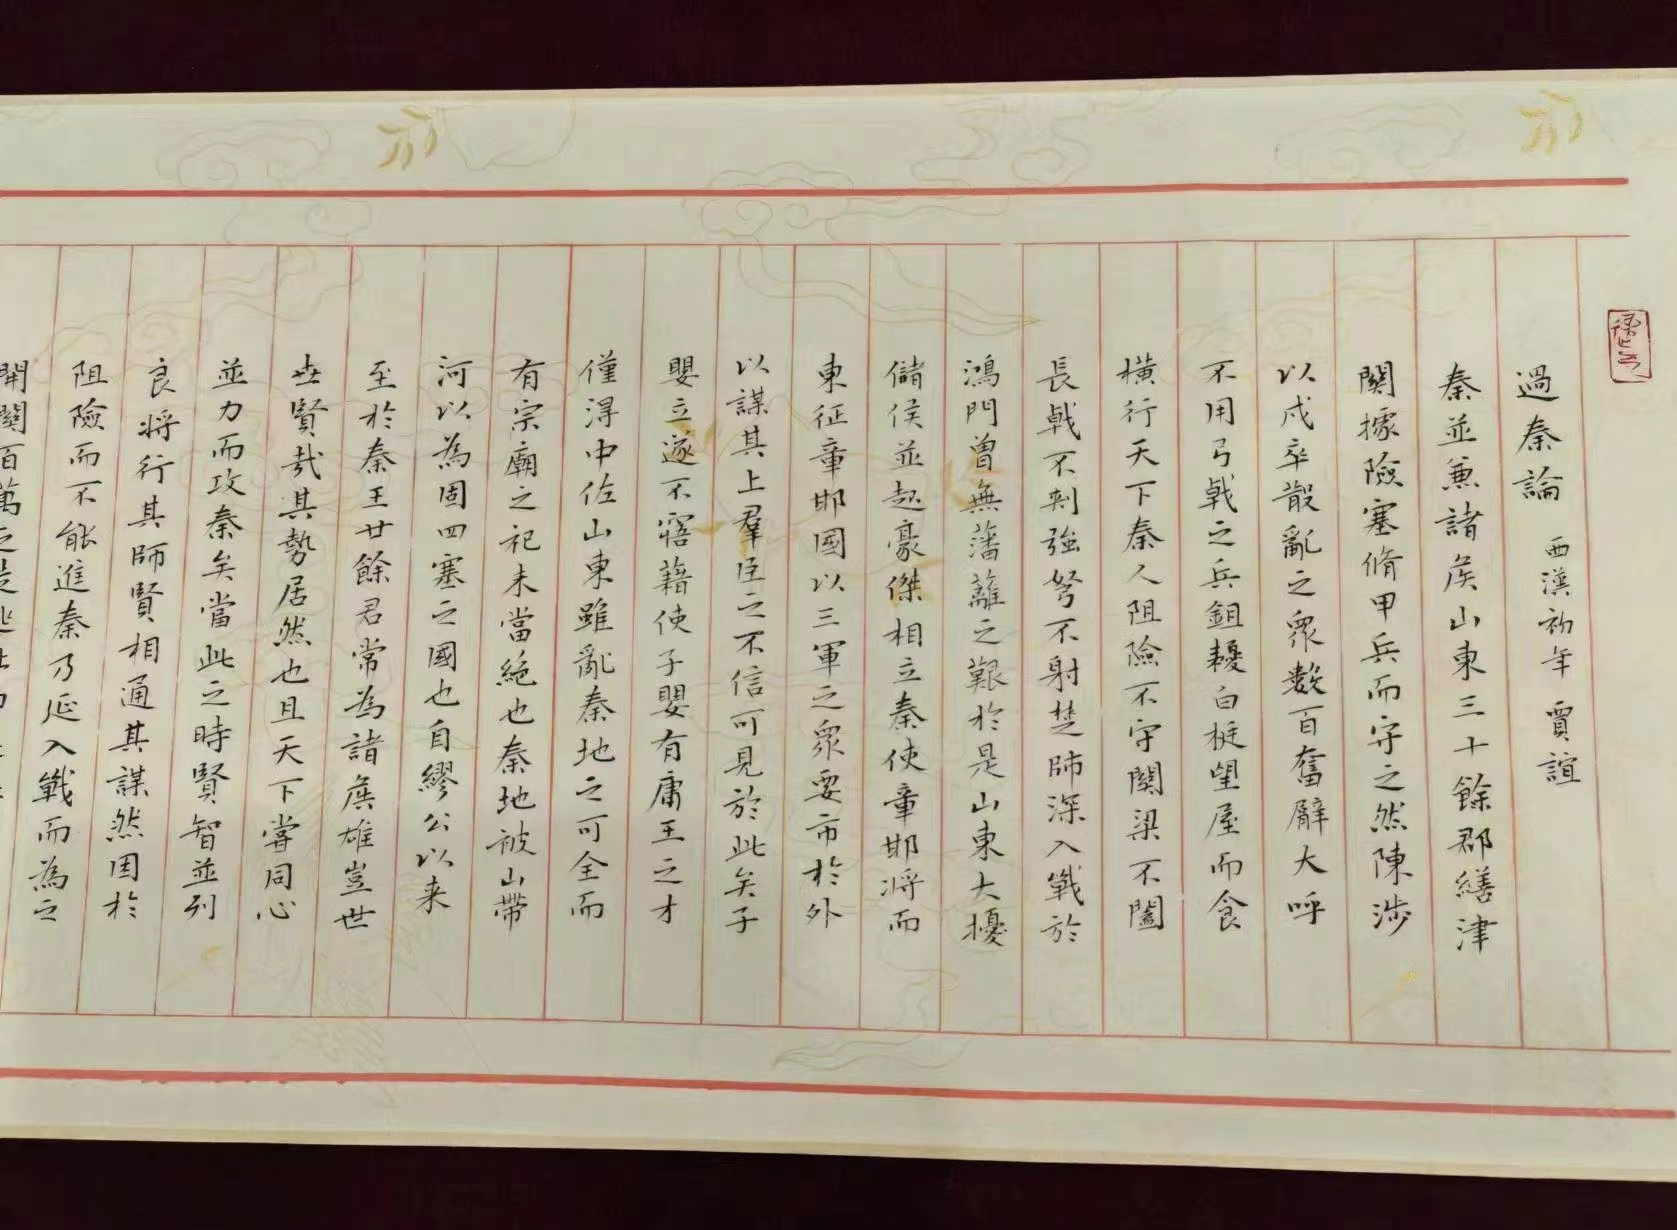 過秦論 西漢初年 賈誼
秦並兼諸侯山東三十餘郡繕津
關據險塞脩甲兵而守之然陳涉
以戍卒散亂之眾數百奮臂大呼
不用弓戟之兵鉏耰白梃望屋而食
橫行天下秦人阻險不守關梁不闔
長戟不刺強弩不射楚師深入戰於
鴻門曾無藩蘺之艱於是山東大擾
儲侯並起豪傑相立秦使章邯將而
東征章邯國以三軍之眾要市於外
以謀其上羣臣之不信可見於此矣子
嬰立遂不寤藉使子嬰有庸王之才
僅得中佐山東雖亂秦地之可全而
有宗廟之祀未當絕也秦地被山帶
河以為固四塞之國也自繆公以來
至於秦王廿餘君常為諸侯雄豈世
世賢哉其勢居然也且天下嘗同心
並力而攻秦矣當此之時賢智並列
良將行其師賢相通其謀然困於
阻險而不能進秦乃延入戰而為之
開關百萬之徒逃